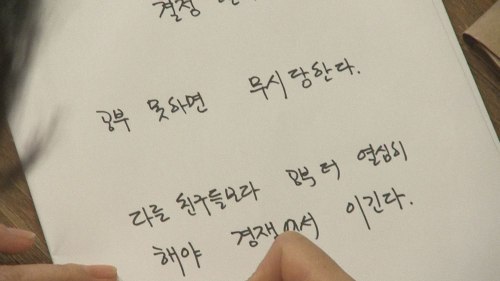 결정
공부 못하면 무시당한다.
다른 친구들보다 공부 더 열심히
해야 경재에서 이긴다.